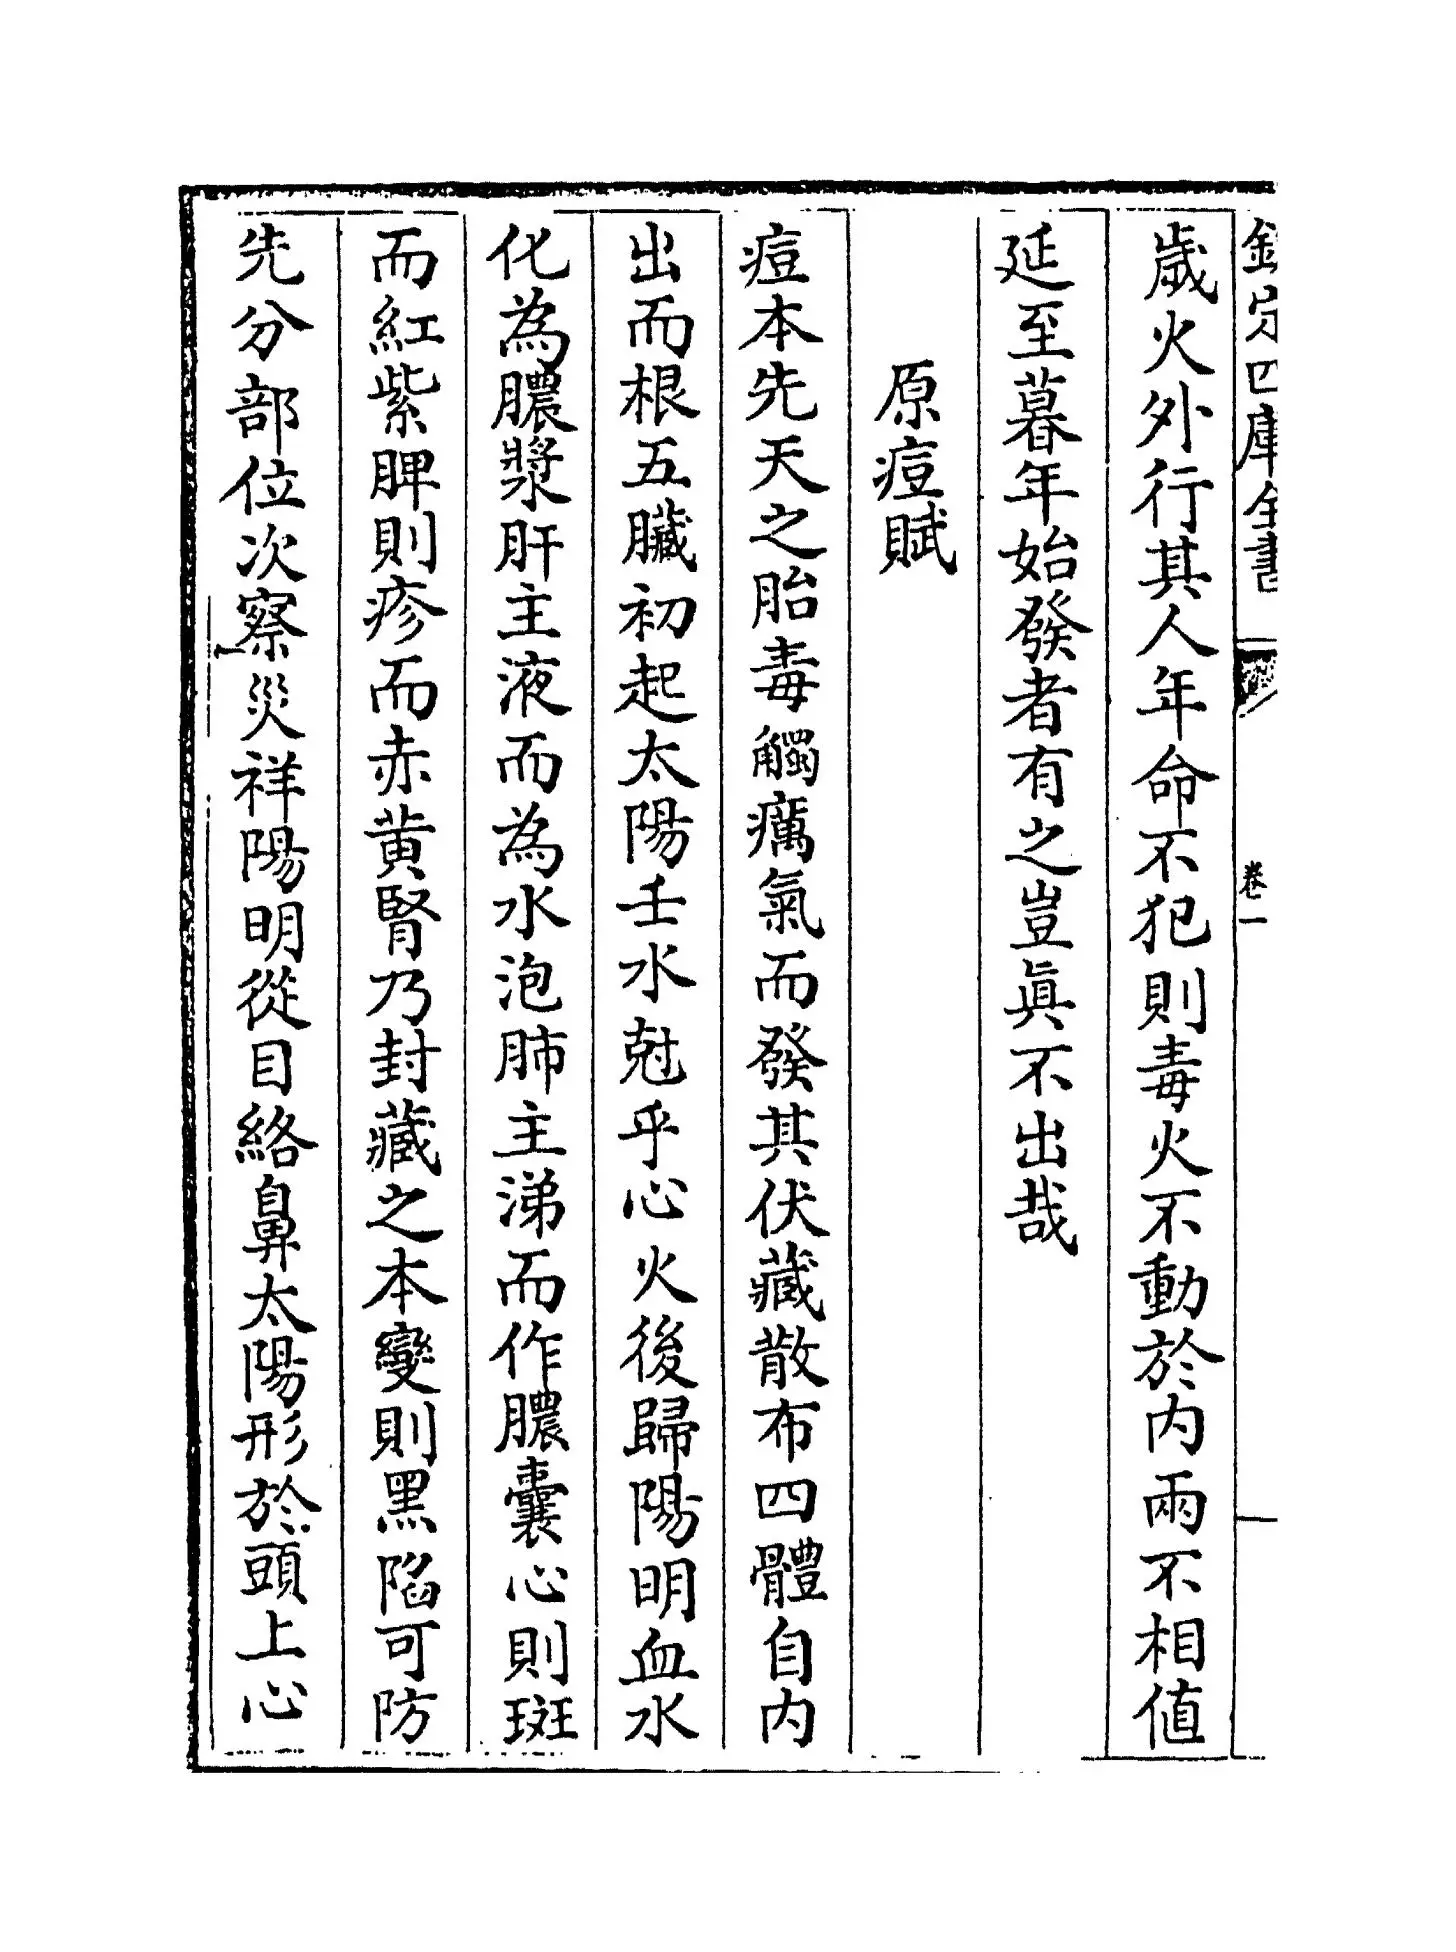 欽定四庫全書
卷一
歲火外行其人年命不犯則毒火不動於内兩不相值
延至暮年始發者有之豈眞不出哉
原痘賦
痘本先天之胎毒觸癘氣而發其伏藏散布四體自内
出而根五臟初起太陽壬水尅乎心火後歸陽明血水
化為膿漿肝主液而為水泡肺主涕而作膿囊心則斑
而紅紫脾則疹而赤黄腎乃封藏之本變則黑陷可防
先分部位次察災祥陽明從目絡鼻太陽形於頭上心